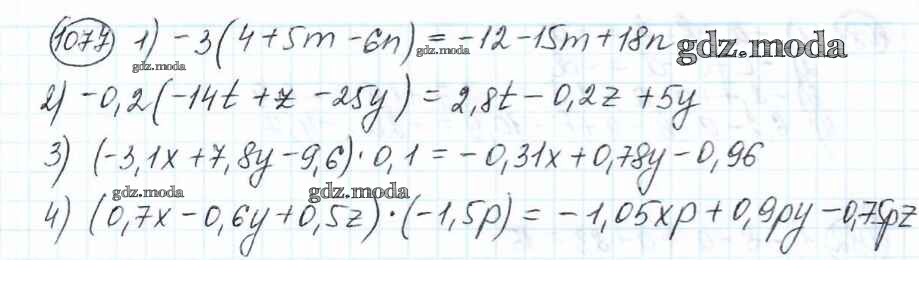 1077 1) -3(4+5m-6n) = -12-15m+18n gdz.moda
gdz.moda gdz.moda
2) -0,2(-14t+z-25y) = 2,8t-0,2z+5y
3) (-3,1x+7,8y-9,6)·0,1 = -0,31x+0,78y-0,96
gdz.moda gdz.moda
4) (0,7x-0,6y+0,5z)·(-1,5p) = -1,05xp+0,9py-0,75pz